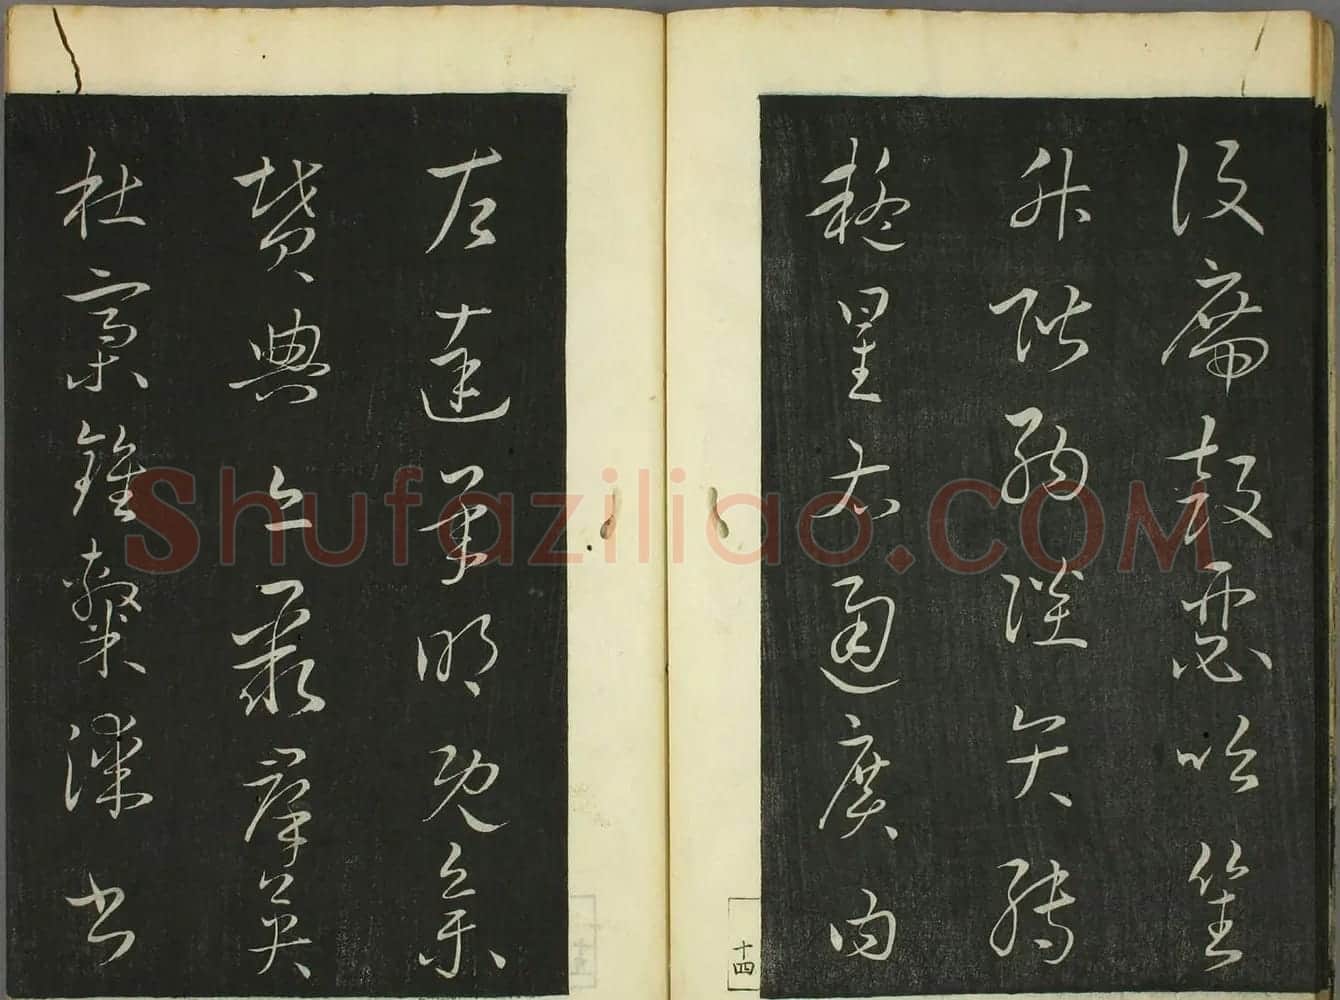 設席鼓瑟吹笙
升階納陛弁轉
疑星右通廣內
十四
左達承明既集
墳典亦聚羣英
杜稾鍾隸漆書
Shufaziliao.COM